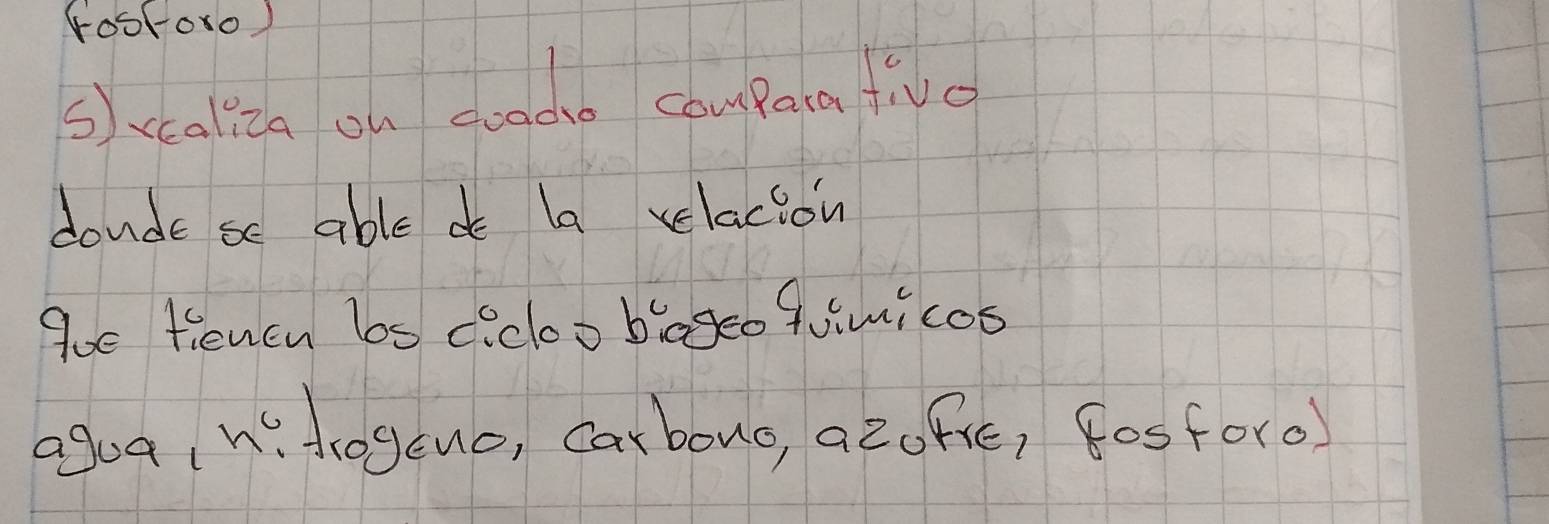 fosforo)
5) realiza un cuadro comparativo
donde se able de la relación
que tienen los ciclos biogeoquimicos
agua, nitrogeno, carbono, azufre, fosforo)